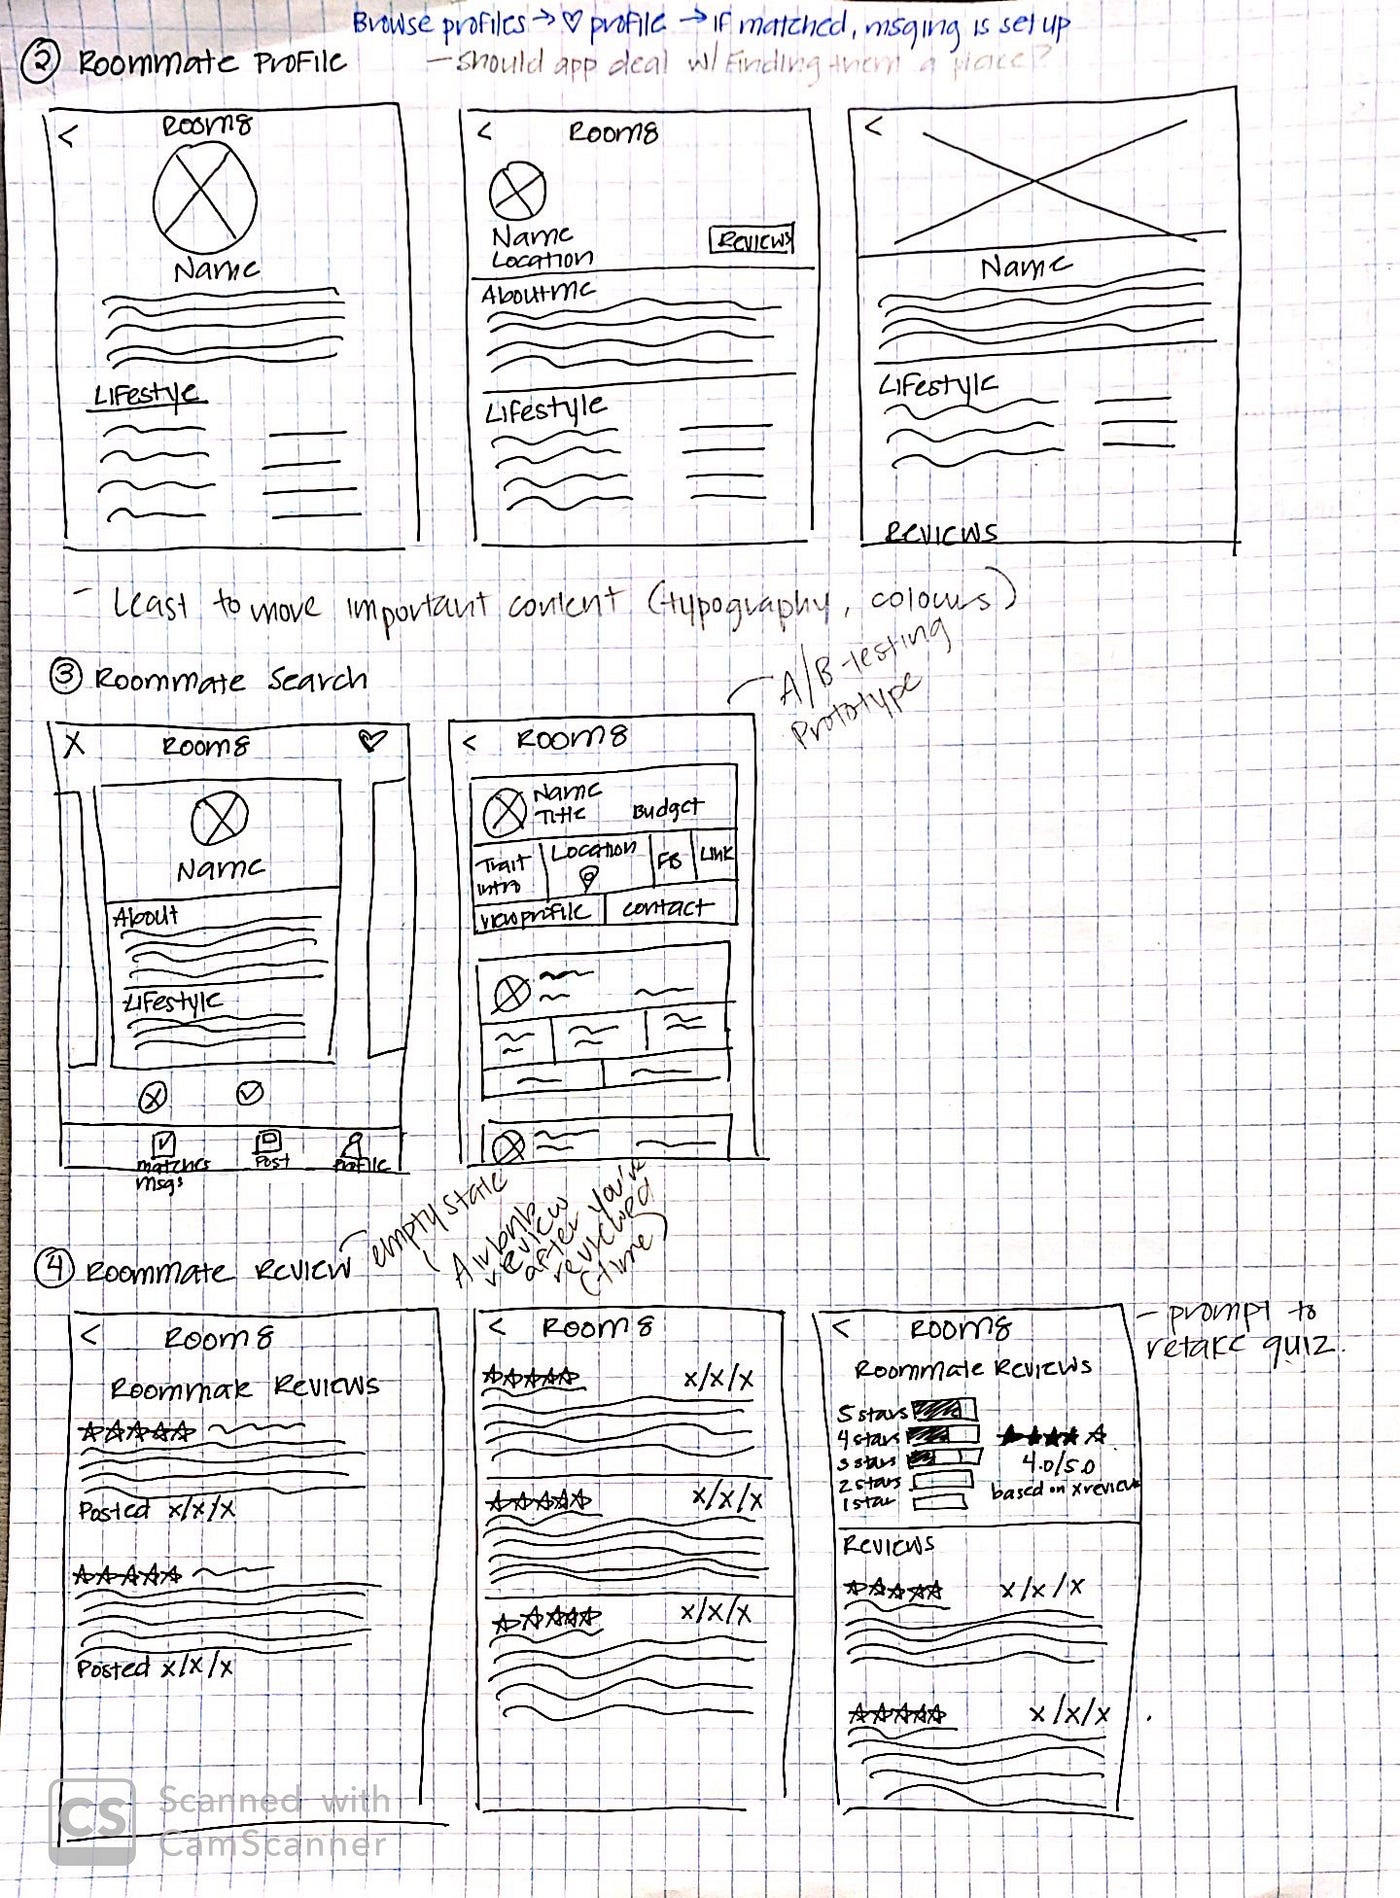 Browse profiles → ♡ profile → if matched, msging is set up
② Roommate Profile
- Should app deal w/ finding them a place?
< Room8
Name
Lifestyle
< Room8
Name
Location
Reviews
About me
Lifestyle
<
Name
Lifestyle
Reviews
- Least to more important content (typography, colours)
③ Roommate Search
A/B testing
Prototype
X Room8 ♡
Name
About
Lifestyle
matches
msgs
Post
Profile
< Room8
Name
Title
Budget
Trait
intro
Location
FB
Link
view profile
contact
④ Roommate Review
empty state
(Airbnb
review
after you've
reviewed
(time)
< Room8
Roommate Reviews
Posted x/x/x
Posted x/x/x
< Room8
x/x/x
x/x/x
x/x/x
< Room8
Roommate Reviews
5 stars
4 stars
3 stars
2 stars
1 star
4.0/5.0
based on x reviews
Reviews
x/x/x
x/x/x
- prompt to
retake quiz.
CS
Scanned with
CamScanner